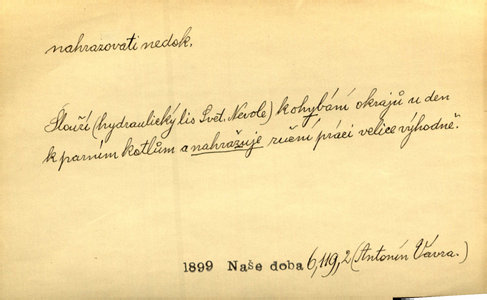 nahrazovati nedok.
Slouží (hydraulický lis Svět. Nevole) k ohybání okrajů u den
k parním kotlům a nahražuje ruční práci velice výhodně.
1899 Naše doba 6,119,2 (Antonín Vávra.)